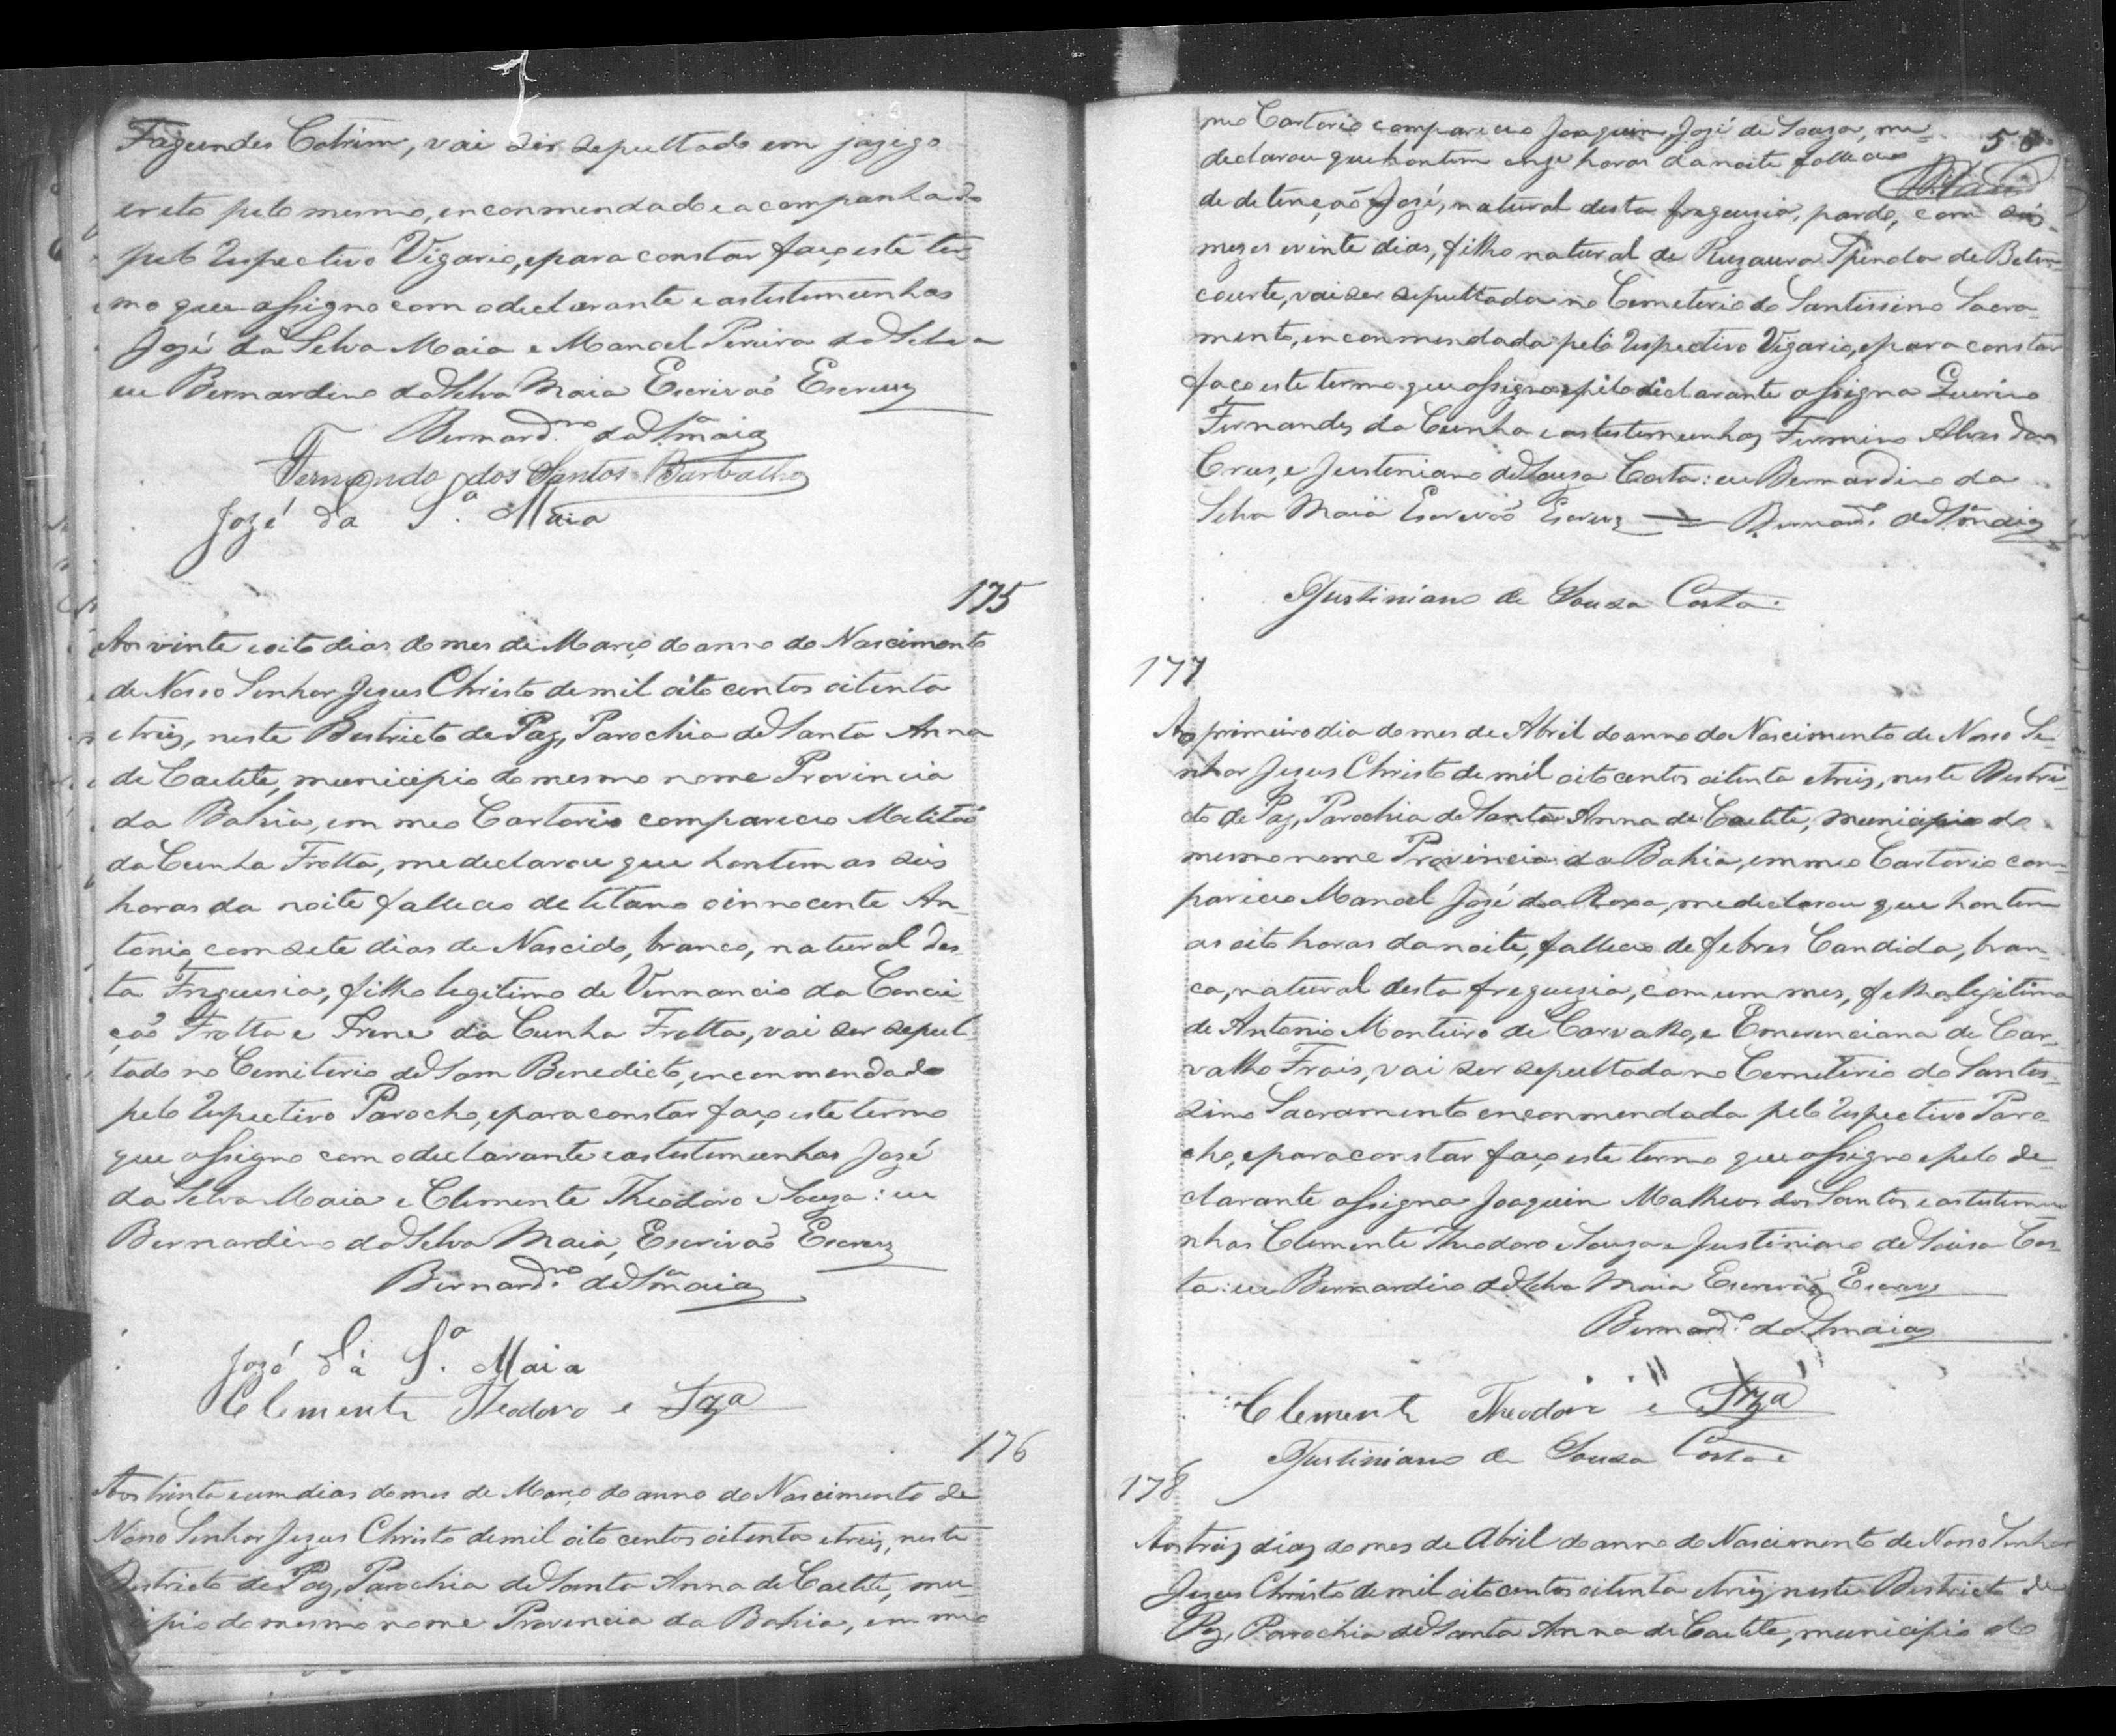 Fagundes Cotrim, vai ser sepultado em jazigo
ereto pelo mesmo, enconmendado e acompanhado
pelo respectivo Vigario, e para constar faço este ter
mo que assigno com o declarante e as testemunhas
José da Silva Maia e Manoel Pereira da Silva
eu Bernardino da Silva Maia Escrivaõ Escrevy
Bernard.no da S.a Maia
Fernando dos Santos Barbalho
Jozé da S.a Maia
175
Aos vinte e oito dias do mes de Março do anno do Nascimento
de Nosso Senhor Jezus Christo de mil oito centos oitenta
e treis, neste Destricto de Paz, Parochia de Santa Anna
de Caetite, municipio do mesmo nome Provincia
da Bahia, em meo Cartorio compareceo Melitaõ
da Cunha Frotta, me declarou que hontem as seis
horas da noite falleceo de tetano o innocente An-
tonio, com sete dias de Nascido, branco, natural des-
ta Freguesia, filho legitimo de Vennancio da Concei
çaõ Frotta e Irene da Cunha Frotta, vai ser sepul-
tado no Cemiterio de Sam Benedicto, enconmendado
pelo respectivo Parocho, e para constar faço este termo
que assigno com o declarante e as testemunhas José
da Silva Maia e Clemente Theodoro e Souza: eu
Bernardino da Silva Maia, Escrivaõ Escrevy
Bernard.no da S.a Maia
Jozé da S.a Maia
Clemente Theodoro e Sza
176
Aos trinta e um dias do mes de Março do anno do Nascimento de
Nosso Senhor Jezus Christo de mil oito centos oitenta e treis, neste
Destricto de Paz, Parochia de Santa Anna de Caetite, mu-
cipio do mesmo nome Provincia da Bahia, em meo
58
meo Cartorio compareceo Joaquim José de Souza, me
declarou que hontem onze horas da noite falleceo
de detençaõ José, natural desta freguezia, pardo, com seis
mezes e vinte dias, filho natural de Ruzaura de Beten-
courte, vai ser sepultada no Cemeterio do Santissimo Sacra-
mento, enconmendada pelo respectivo Vigario, e para constar
faço este termo que assigno e pelo declarante assigna Querino
Fernandes da Cunha e as testemunhas Fermino Alves da
Crus, e Justiniano de Souza Costa: eu Bernardino da
Silva Maia Escrivaõ Escrevy Bernard.o da S.a Maia
Justiniano de Souza Costa
177
Ao primeiro dia do mes de Abril do anno do Nascimento de Nosso Se-
nhor Jezus Christo de mil oito centos oitenta e treis, neste Destri-
cto de Paz, Parochia de Santa Anna de Caetite, municipio do
mesmo nome Provincia da Bahia, em meo Cartorio com-
pareceo Manoel José da Roxa, me declarou que hontem
as oito horas da noite, falleceo de febres Candida, bran-
ca, natural desta freguezia, com um mes, filha legitima
de Antonio Monteiro de Carvalho, e Emerenciana de Car-
valho Frais, vai ser sepultada no Cemeterio do Santis-
simo Sacramento enconmendada pelo respectivo Paro-
cho, e para constar faço este termo que assigno e pelo de-
clarante assigna Joaquim Matheos dos Santos e as testemu-
nhas Clemente Theodoro e Souza e Justiniano de Sousa Cos-
ta: eu Bernardino da Silva Maia Escrivaõ Escrevy
Bernard.o da S.a Maia
Clemente Theodoro e Sza
Justiniano de Souza Costa
178
Aos treis dias do mes de Abril do anno do Nascimento de Nosso Senhor
Jezus Christo de mil oito centos oitenta e treis, neste Destricto de
Paz, Parochia de Santa Anna de Caetite, municipio do